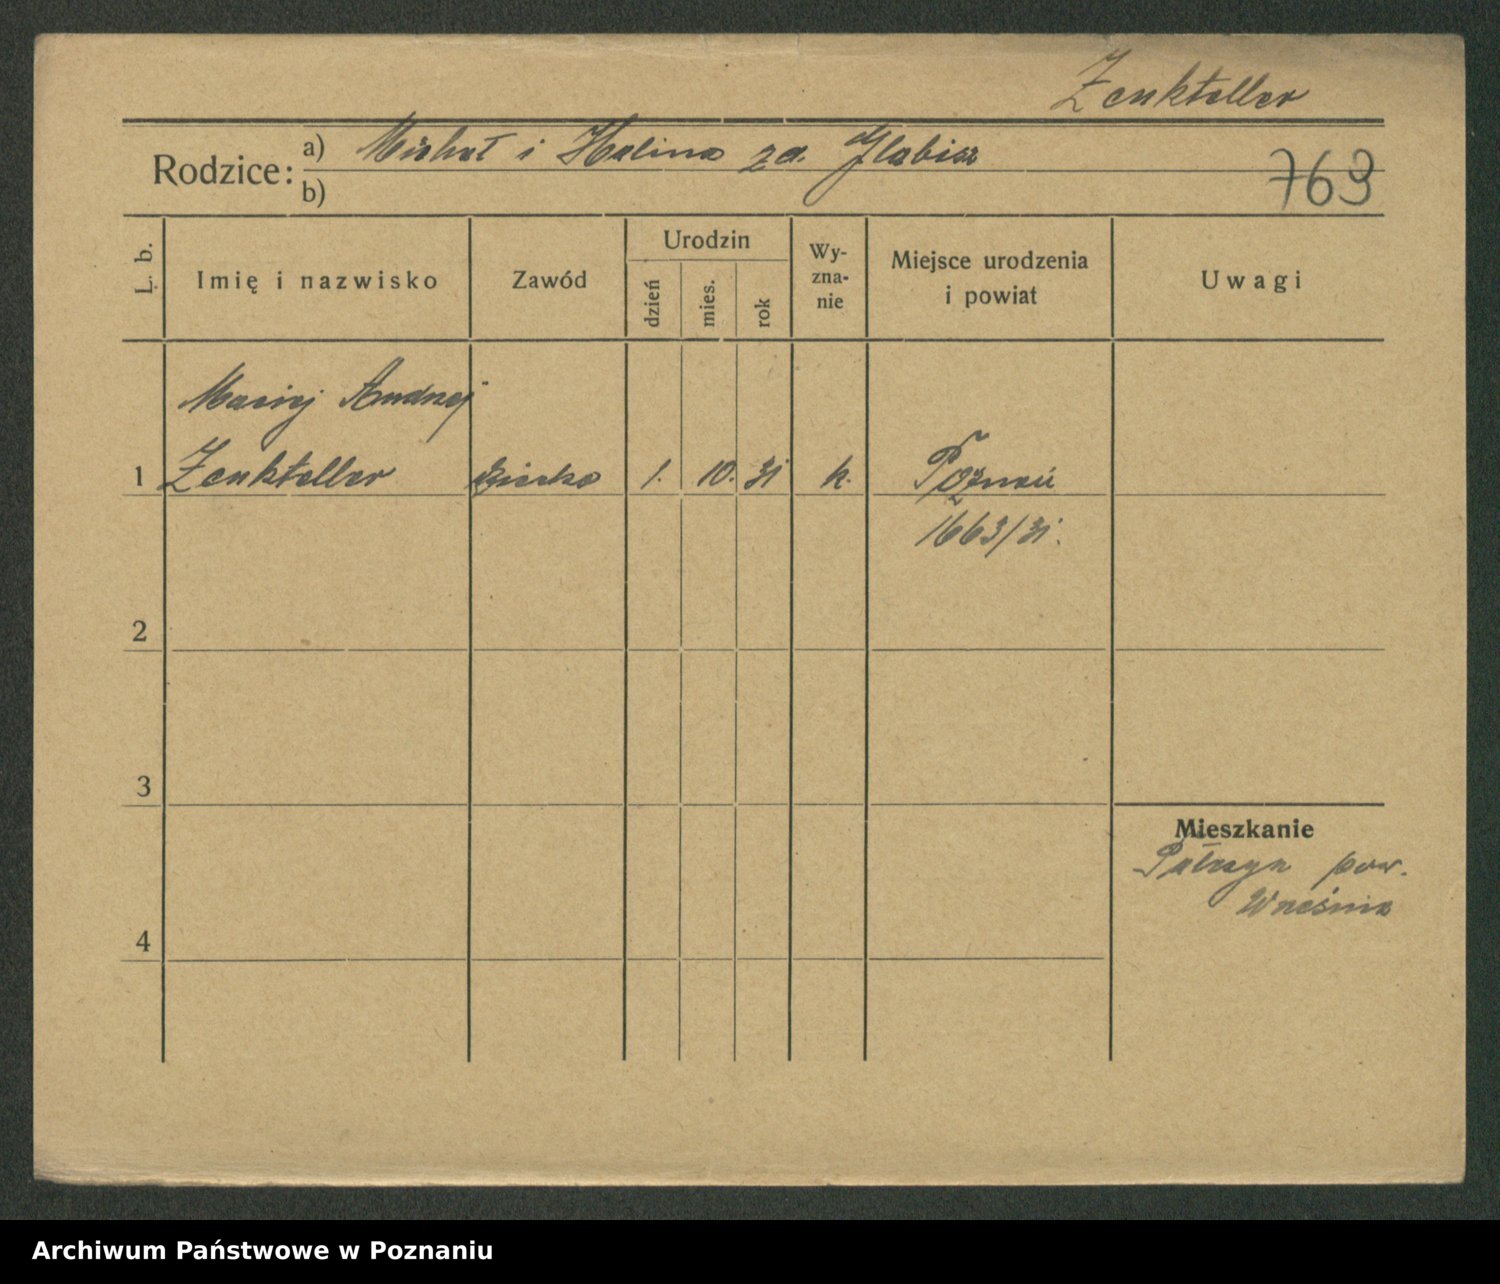 Zenkteller
Rodzice: a) Michał i Halina zd. Glabisz
b)
769
L. b.
Imię i nazwisko
Zawód
Urodzin
dzień
mies.
rok
Wy-
zna-
nie
Miejsce urodzenia
i powiat
Uwagi
Maciej Andrzej
1 Zenkteller dziecko 1. 10. 31 k. Poznań
1663/31.
2
3
Mieszkanie
Pałczyn pow.
Września
4
Archiwum Państwowe w Poznaniu